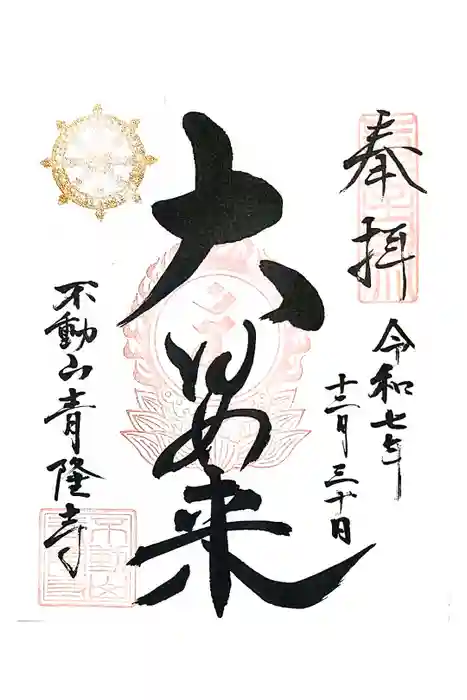 奉拝
令和七年
十二月三十日
大日如来
不動山青隆寺